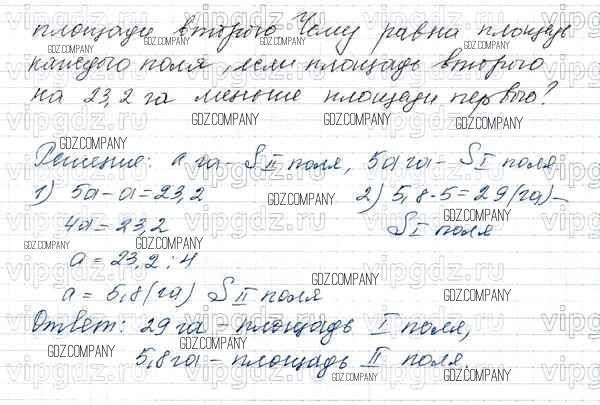 площади второго. Чему равна площадь
каждого поля, если площадь второго
на 23,2 га меньше площади первого?
Решение: а га – S II поля, 5а га – S I поля
1) 5а – а = 23,2
4а = 23,2
а = 23,2 : 4
а = 5,8 (га) S II поля
2) 5,8 · 5 = 29 (га) –
S I поля
Ответ: 29 га – площадь I поля,
5,8 га – площадь II поля.
vipgdz.ru
GDZ.COMPANY